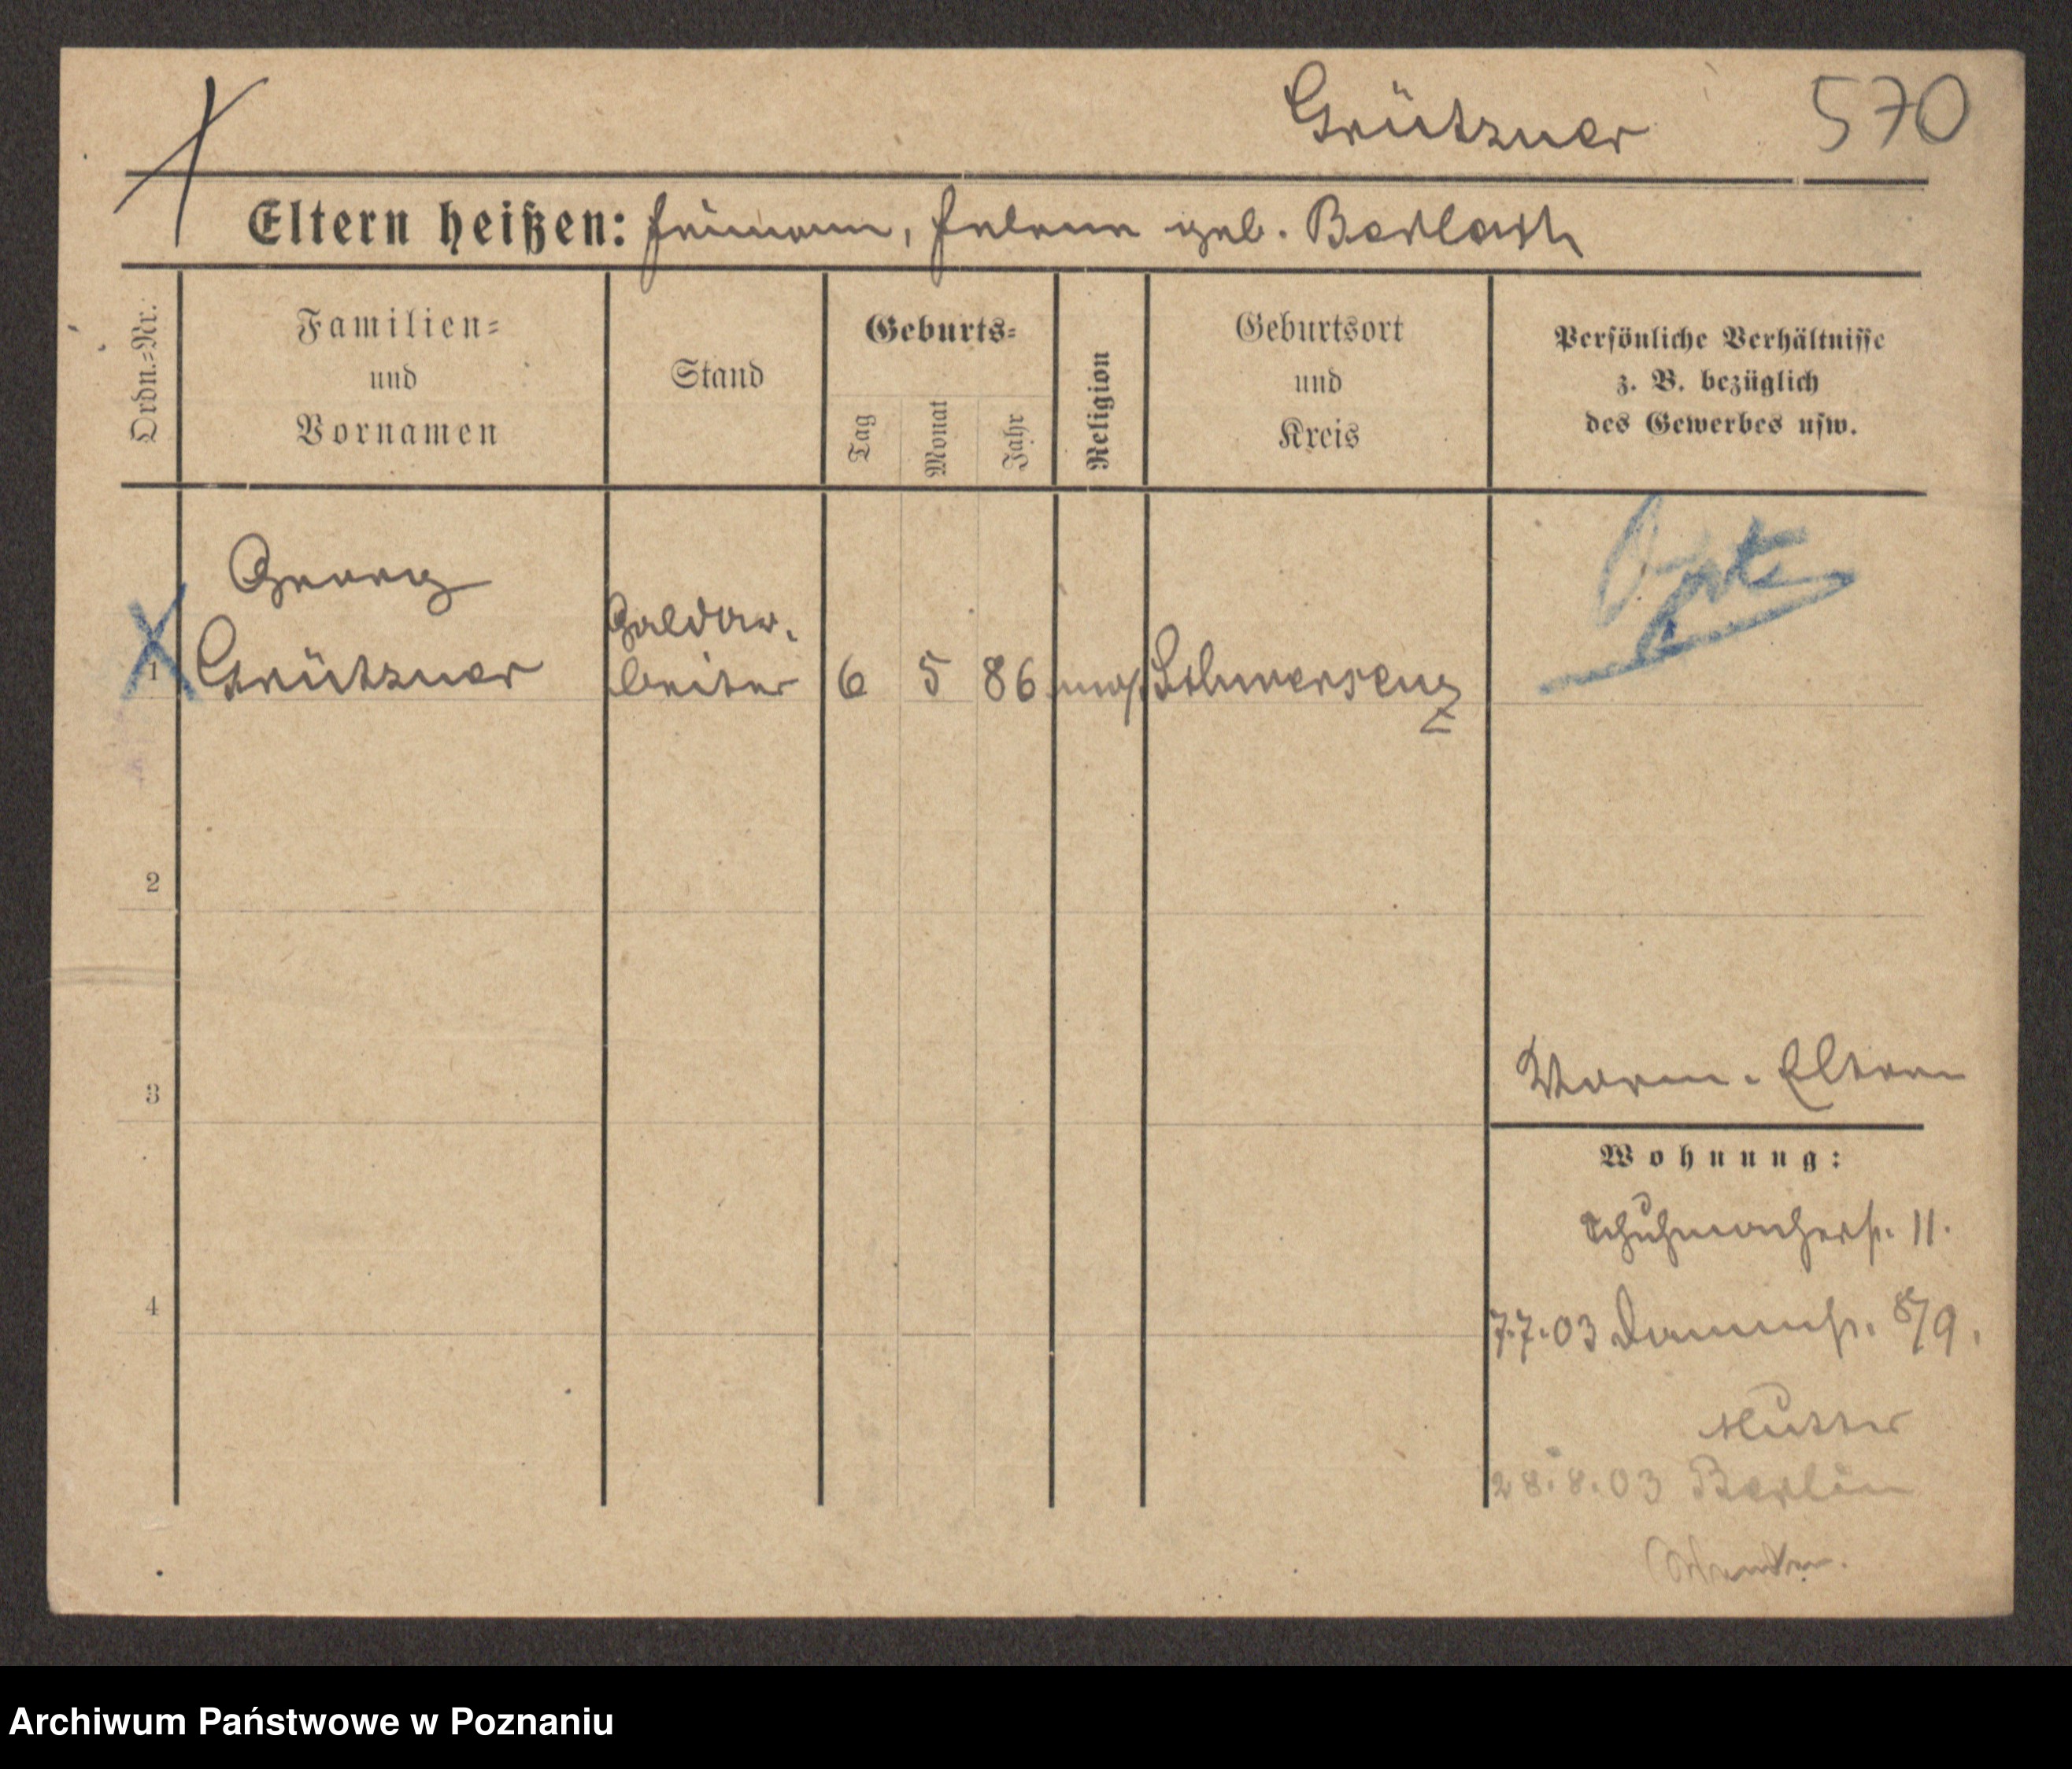 Grützner 570
Eltern heißen: Hermann, Helene geb. Barlasch
Ordn.=Nr.
Familien=
und
Vornamen
Stand
Geburts=
Tag
Monat
Jahr
Religion
Geburtsort
und
Kreis
Persönliche Verhältnisse
z. B. bezüglich
des Gewerbes usw.
Georg
Goldar.
1 Grützner beiter 6 5 86 mos. Schwersenz
2
3
Eltern
Wohnung:
Schuhmacherstr. 11.
4
7.7.03 Dammstr. 8/9.
Mutter
28.8.03 Berlin
Archiwum Państwowe w Poznaniu